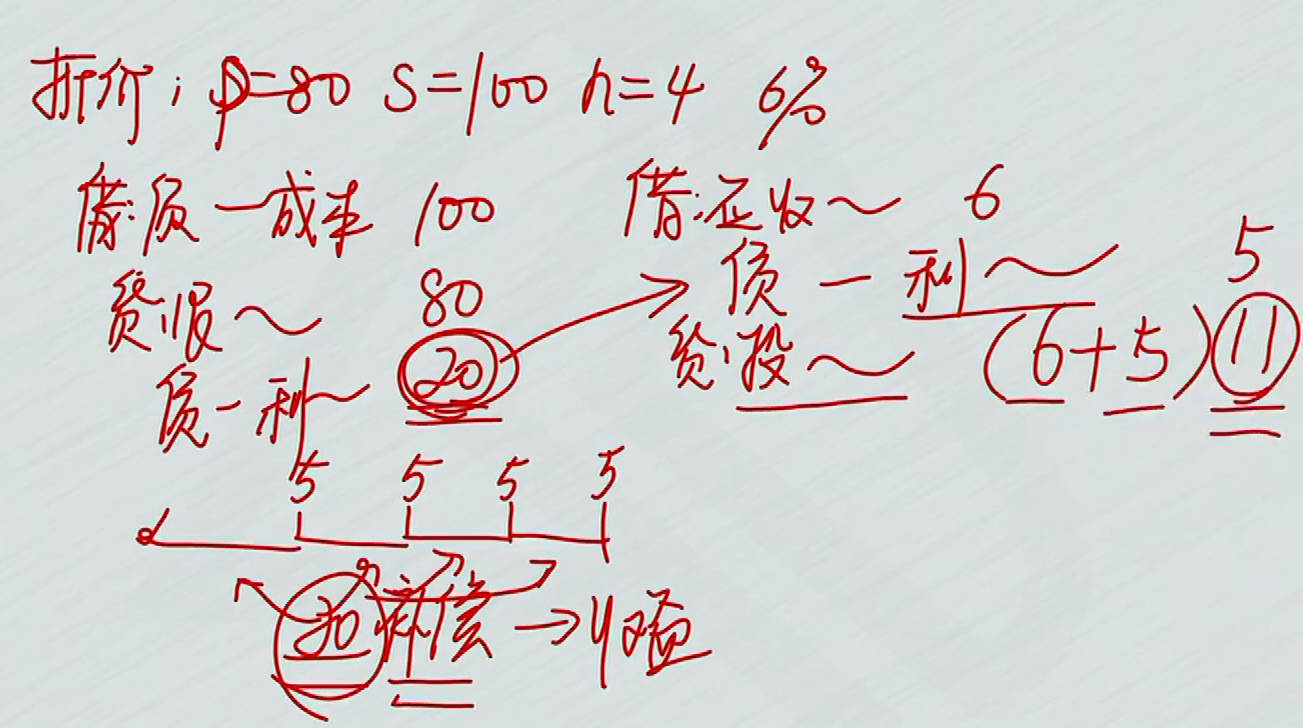 折价; P=80 S=100 n=4 6%
借:债—成本 100
贷:银~ 80
债—利~ 20
借:应收~ 6
债—利~ 5
贷:投~ (6+5) 11
5 5 5 5
20 补偿→收益